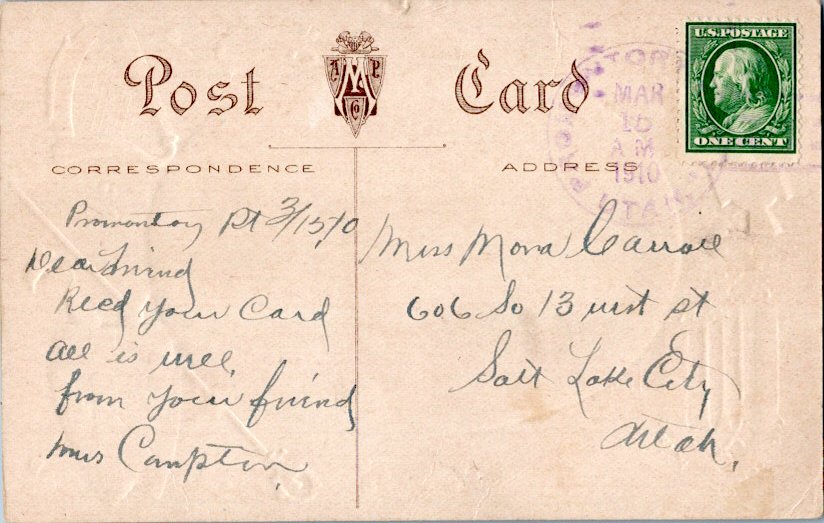 Post Card
CORRESPONDENCE
ADDRESS
U.S. POSTAGE
ONE CENT
MAR
A.M
1910
UTAH
Promontory Pt 3/15/10
Dear Friend
Recd your Card
all is well,
from your friend
Mrs Compton
Miss Mona Carroll
606 So 13 west st
Salt Lake City
Utah,